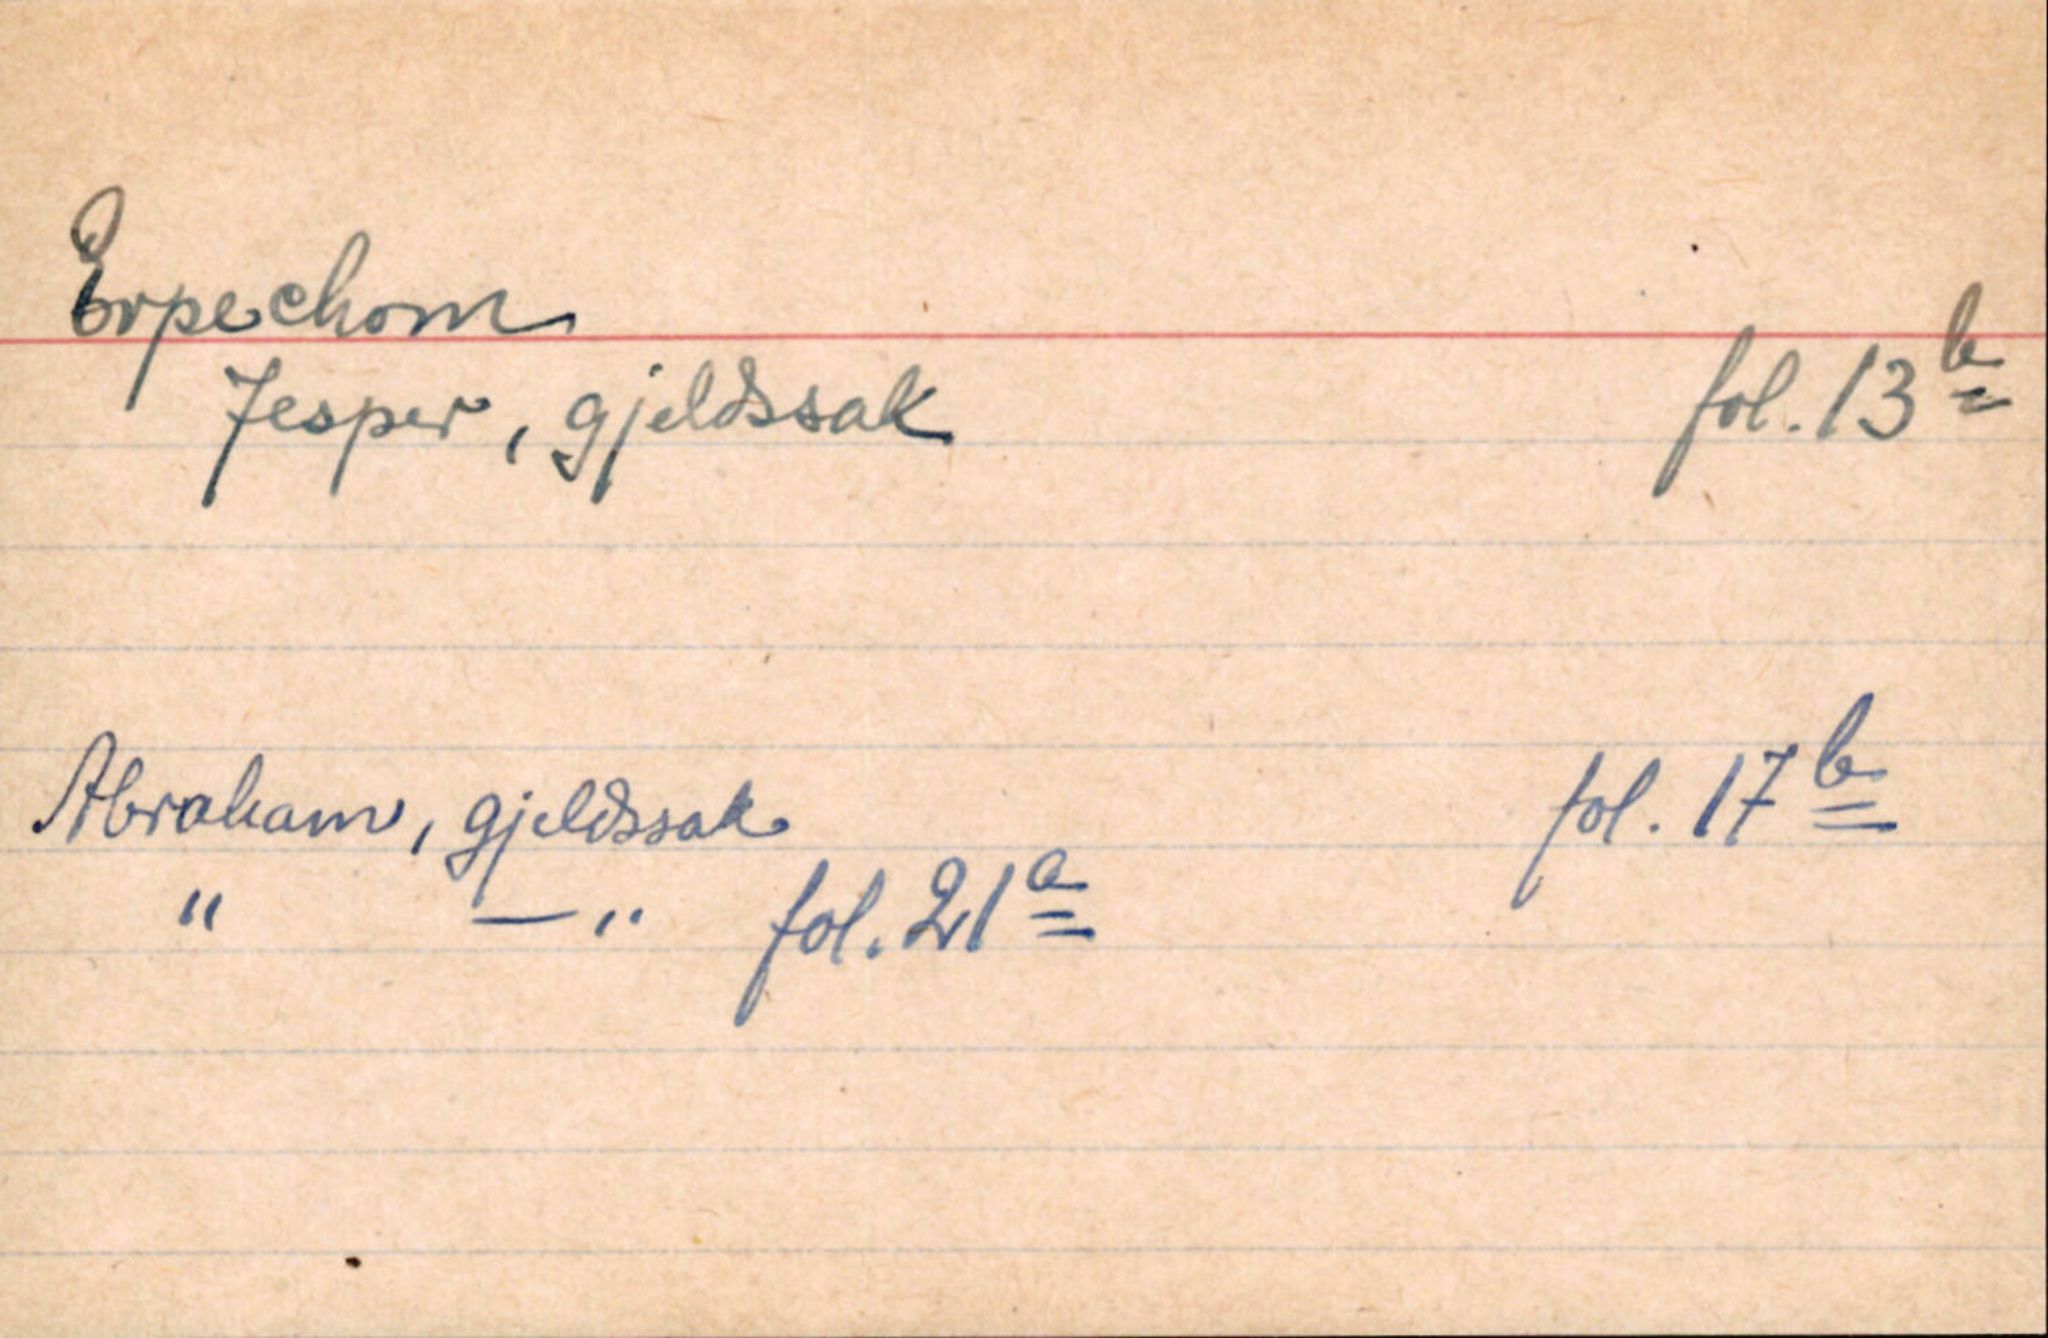 Erpechom
Jesper, gjeldssak fol. 13 b
Abraham, gjeldssak fol. 17 b
" —" fol. 21 a